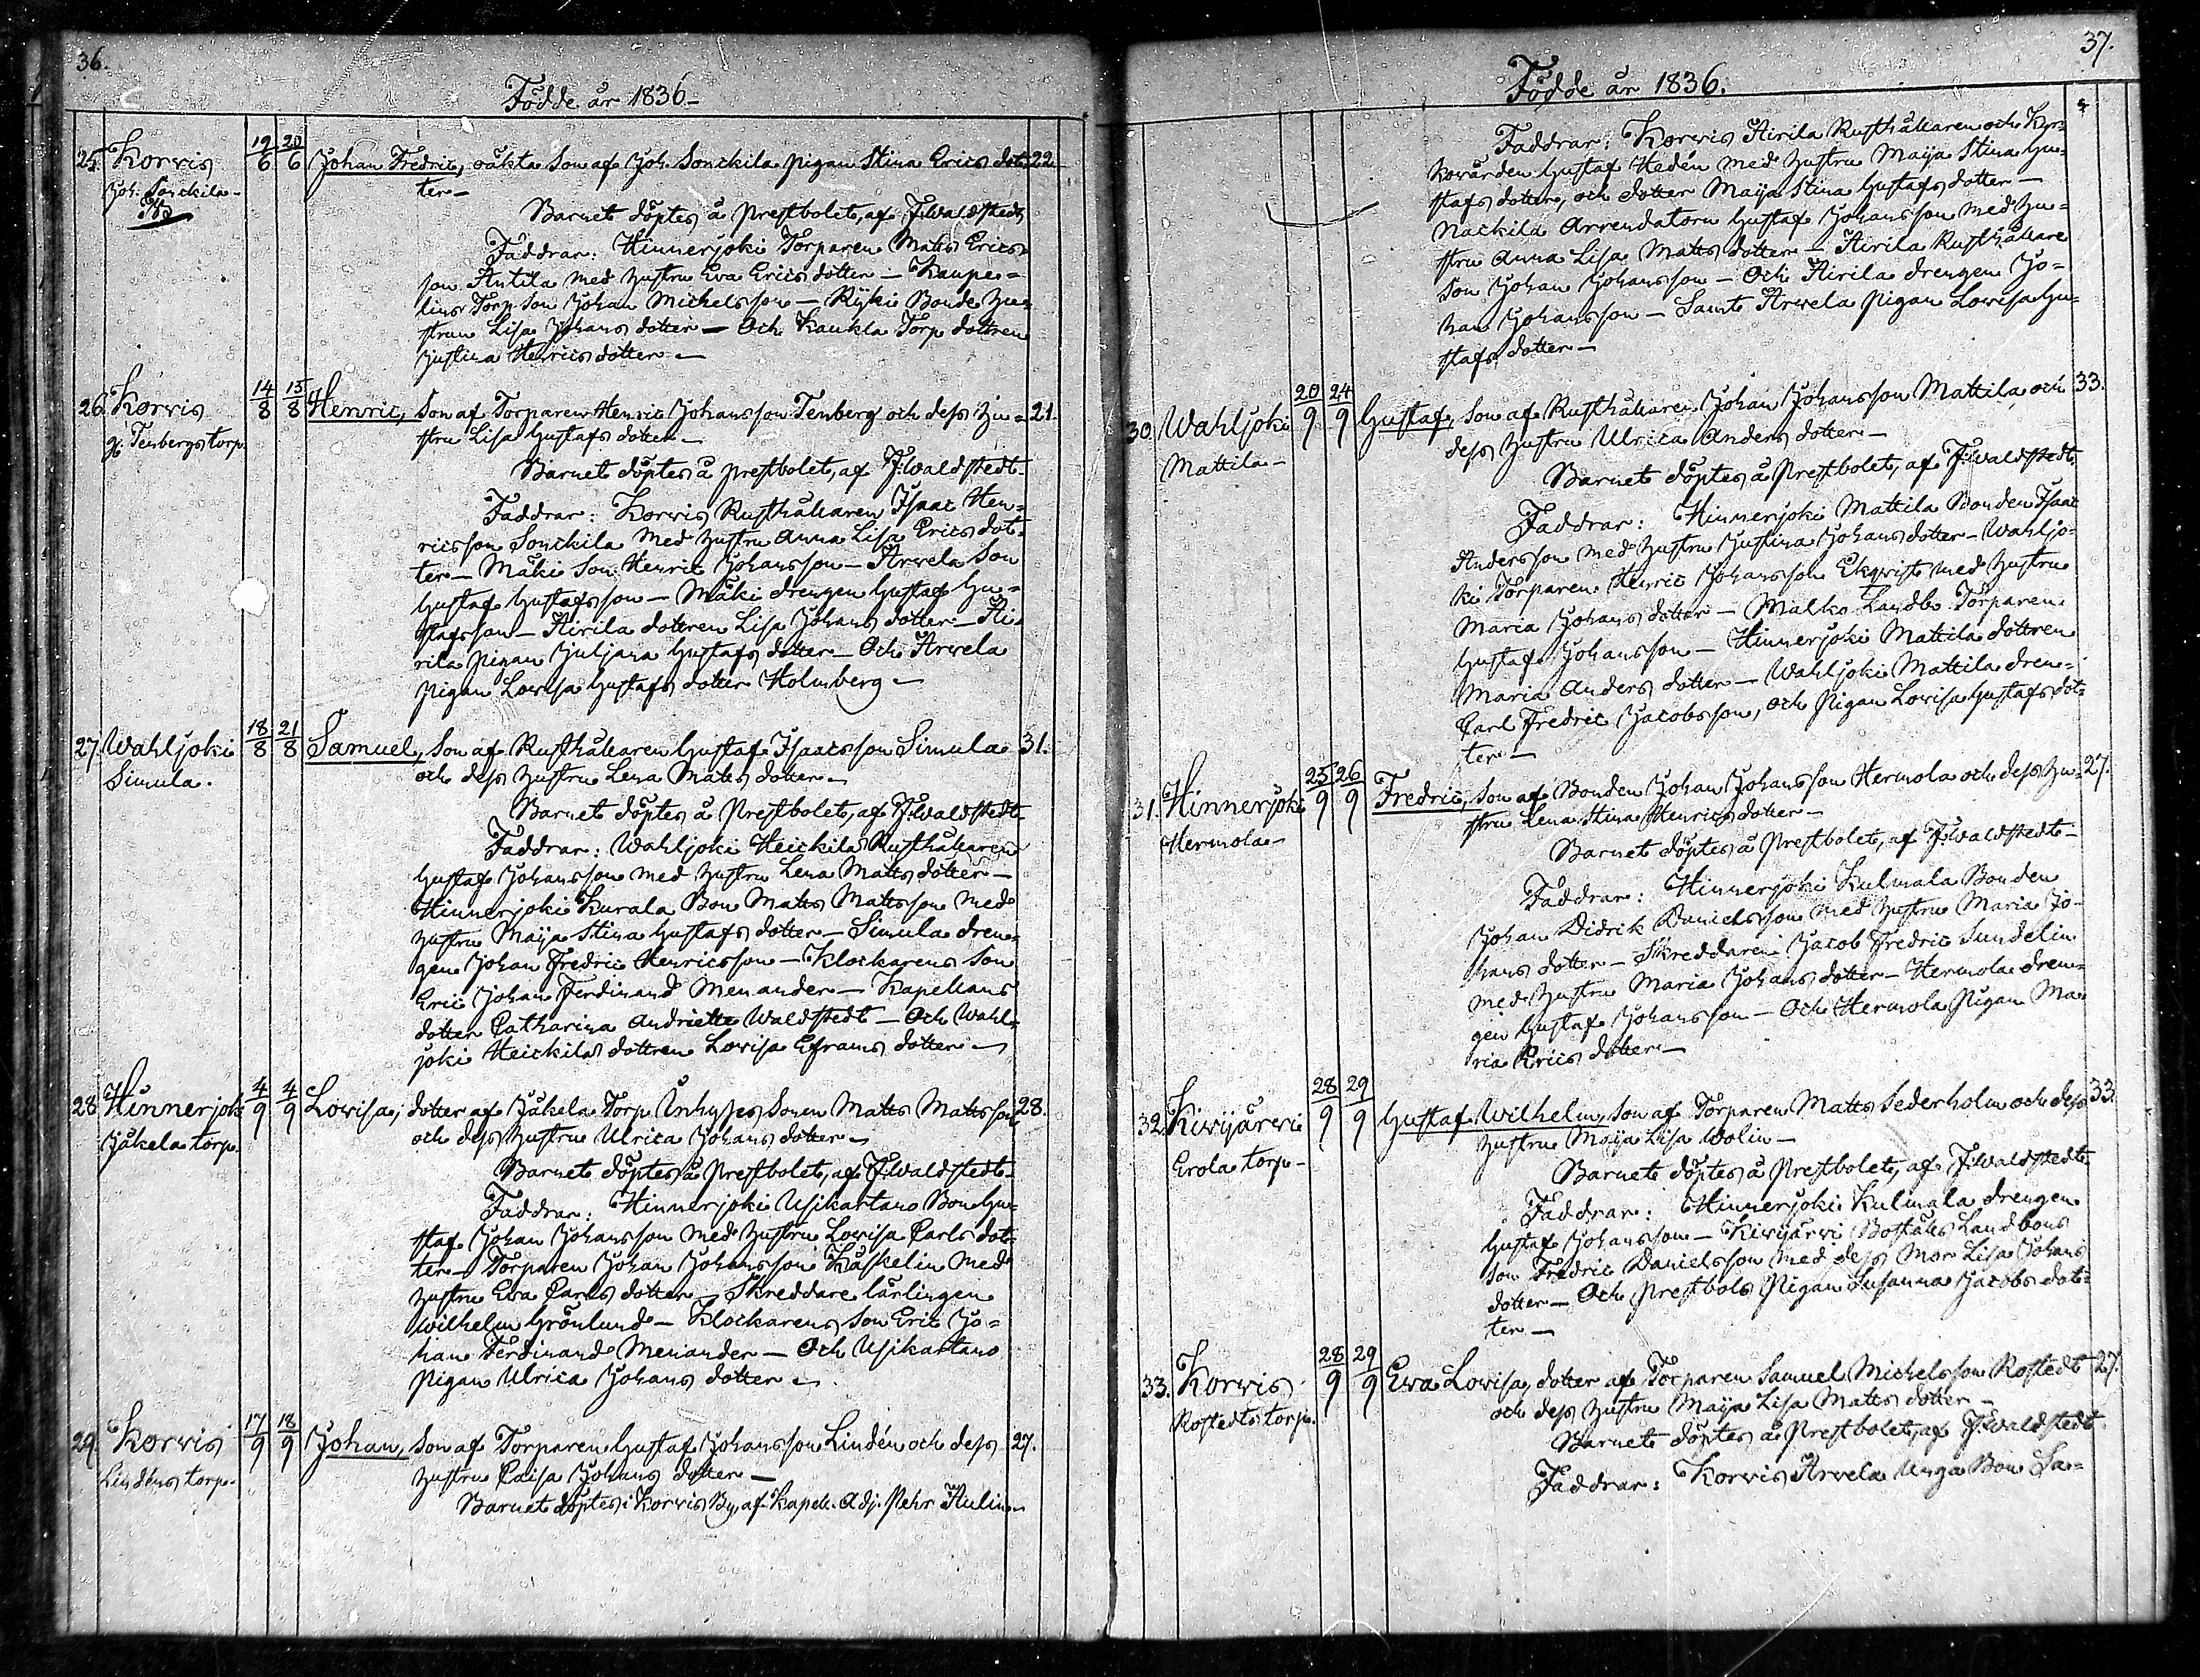 36.
Födde år 1836.
25. Korvis 19/6 20/6 Johan Fredric, oäkta Son af Joh. Sonckila pigan Stina Erics dot- 22.
Joh. Sonckila
ter—
Barnet döptes å prestbolet, af F. Waldstedt
Faddrar: Hinnerjoki Torparen Matts Erics-
son Antila med hustru Eva Erics dotter — Kaupe-
lius Torp Son Johan Michelsson — Ryki Bonde hu-
strun Lisa Johans dotter — Och Kaukla Torp dottren
Justina Henrics dotter—
26. Korvis 14/8 15/8 Henric, Son af Torparen Henric Johansson Tenberg och dess hu- 21.
Tenbergs torp.
stru Lisa Gustafs dotter—
Barnet döptes å prestbolet, af F. Waldstedt
Faddrar: Korvis Rusthållaren Isaac Hen-
ricsson Sonckila med hustru Anna Lisa Erics dot-
ter — Mäki Son Henric Johansson — Arvela Son
Gustaf Gustafsson — Mäki drengen Gustaf Gu-
stafsson — Airila dottren Lisa Johans dotter — Ai-
rila pigan Juljana Gustafs dotter — Och Arvela
pigan Lovisa Gustafs dotter Holmberg—
27. Wahljoki 18/8 21/8 Samuel, Son af Rusthållaren Gustaf Isaacsson Simula 31.
Simula.
och dess hustru Lena Matts dotter—
Barnet döptes å Prestbolet, af F. Waldstedt
Faddrar: Wahljoki Heickilä Rusthållaren
Gustaf Johansson med hustru Lena Matts dotter—
Hinnerjoki Kurala Bon Matts Mattsson med
hustru Maija Stina Gustafs dotter — Simula dren-
gen Johan Fredric Henricsson — Klockarens Son
Eric Johan Ferdinand Menander — Kapellans
dotter Catharina Andriette Waldstedt — Och Wahl-
joki Heickilä dottren Lovisa Eframs dotter—
28. Hinnerjoki 4/9 4/9 Lovisa, dotter af Jäkela Torp Inhyses Sonen Matts Mattsson 28.
Jäkela torp.
och dess hustru Ulrica Johans dotter—
Barnet döptes å Prestbolet, af F. Waldstedt
Faddrar: Hinnerjoki Usikartano Bon Gu-
staf Johan Johansson med hustru Lovisa Carls dot-
ter — Torparen Johan Johansson Kaskelin med
hustru Eva Carls dotter — Skreddare lärlingen
Wilhelm Grönlund — Klockarens Son Eric Jo-
han Ferdinand Menander — Och Usikartano
Pigan Ulrica Johans dotter—
29. Korvis 17/9 18/9 Johan, Son af Torparen Gustaf Johansson Lindén och dess 27.
Lindéns torp.
hustru Caisa Johans dotter—
Barnet döptes i Korvis By, af Kapell. Adj. Pehr Aulin—
37.
Födde år 1836.
Faddrar: Korvis Airila Rusthållaren och Kyr-
kovärden Gustaf Hedén med hustru Maija Stina Gu-
stafs dotter, och dotter Maija Stina Gustafs dotter—
Nackila Arrendatorn Gustaf Johansson med hu-
stru Anna Lisa Matts dotter — Airila Rusthållare
Son Johan Johansson — Och Airila drengen Jo-
han Johansson — Samt Arvela pigan Lovisa Gu-
stafs dotter—
30. Wahljoki 20/9 24/9 Gustaf, Son af Rusthållaren Johan Johansson Mattila och 33.
Mattila—
dess hustru Ulrica Anders dotter—
Barnet döptes å Prestbolet, af F. Waldstedt
Faddrar: Hinnerjoki Mattila Bonden Isaac
Andersson med hustru Justina Johans dotter — Wahljo-
ki Torparen Henric Johansson Ekqvist med hustru
Maria Johans dotter — Malko Landb. Torparen
Gustaf Johansson — Hinnerjoki Mattila dottren
Maria Anders dotter — Wahljoki Mattila dren-
Carl Fredric Jacobsson, och Pigan Lovisa Gustafs dot-
ter—
31. Hinnerjoki 25/9 26/9 Fredric, Son af Bonden Johan Johansson Hermola och dess hu- 27.
Hermola—
stru Lena Stina Henrics dotter—
Barnet döptes å Prestbolet, af F. Waldstedt—
Faddrar: Hinnerjoki Kulmala Bonden
Johan Didrik Danielsson med hustru Maria Jo-
hans dotter — Skreddaren Jacob Fredric Sundelin
med hustru Maria Johans dotter — Hermola dren-
gen Gustaf Johansson — Och Hermola Pigan Ma-
ria Erics dotter—
32. Kivijärvi 28/9 29/9 Gustaf Wilhelm, Son af Torparen Matts Sederholm och dess 33.
Erola torp—
hustru Maija Lisa Wolin—
Barnet döptes å Prestbolet, af F. Waldstedt
Faddrar: Hinnerjoki Kulmala drengen
Gustaf Johansson — Kivijärvi Boställs Landbons
Son Fredric Danielsson med dess Mor Lisa Johans
dotter — Och Prestbols Pigan Susanna Jacobs dot-
ter—
33. Korvis 28/9 29/9 Eva Lovisa, dotter af Torparen Samuel Michelsson Rostedt 27.
Rostedts torp.
och dess hustru Maija Lisa Matts dotter—
Barnet döptes å Prestbolet, af F. Waldstedt
Faddrar: Korvis Arvela Unga Bon Sa-